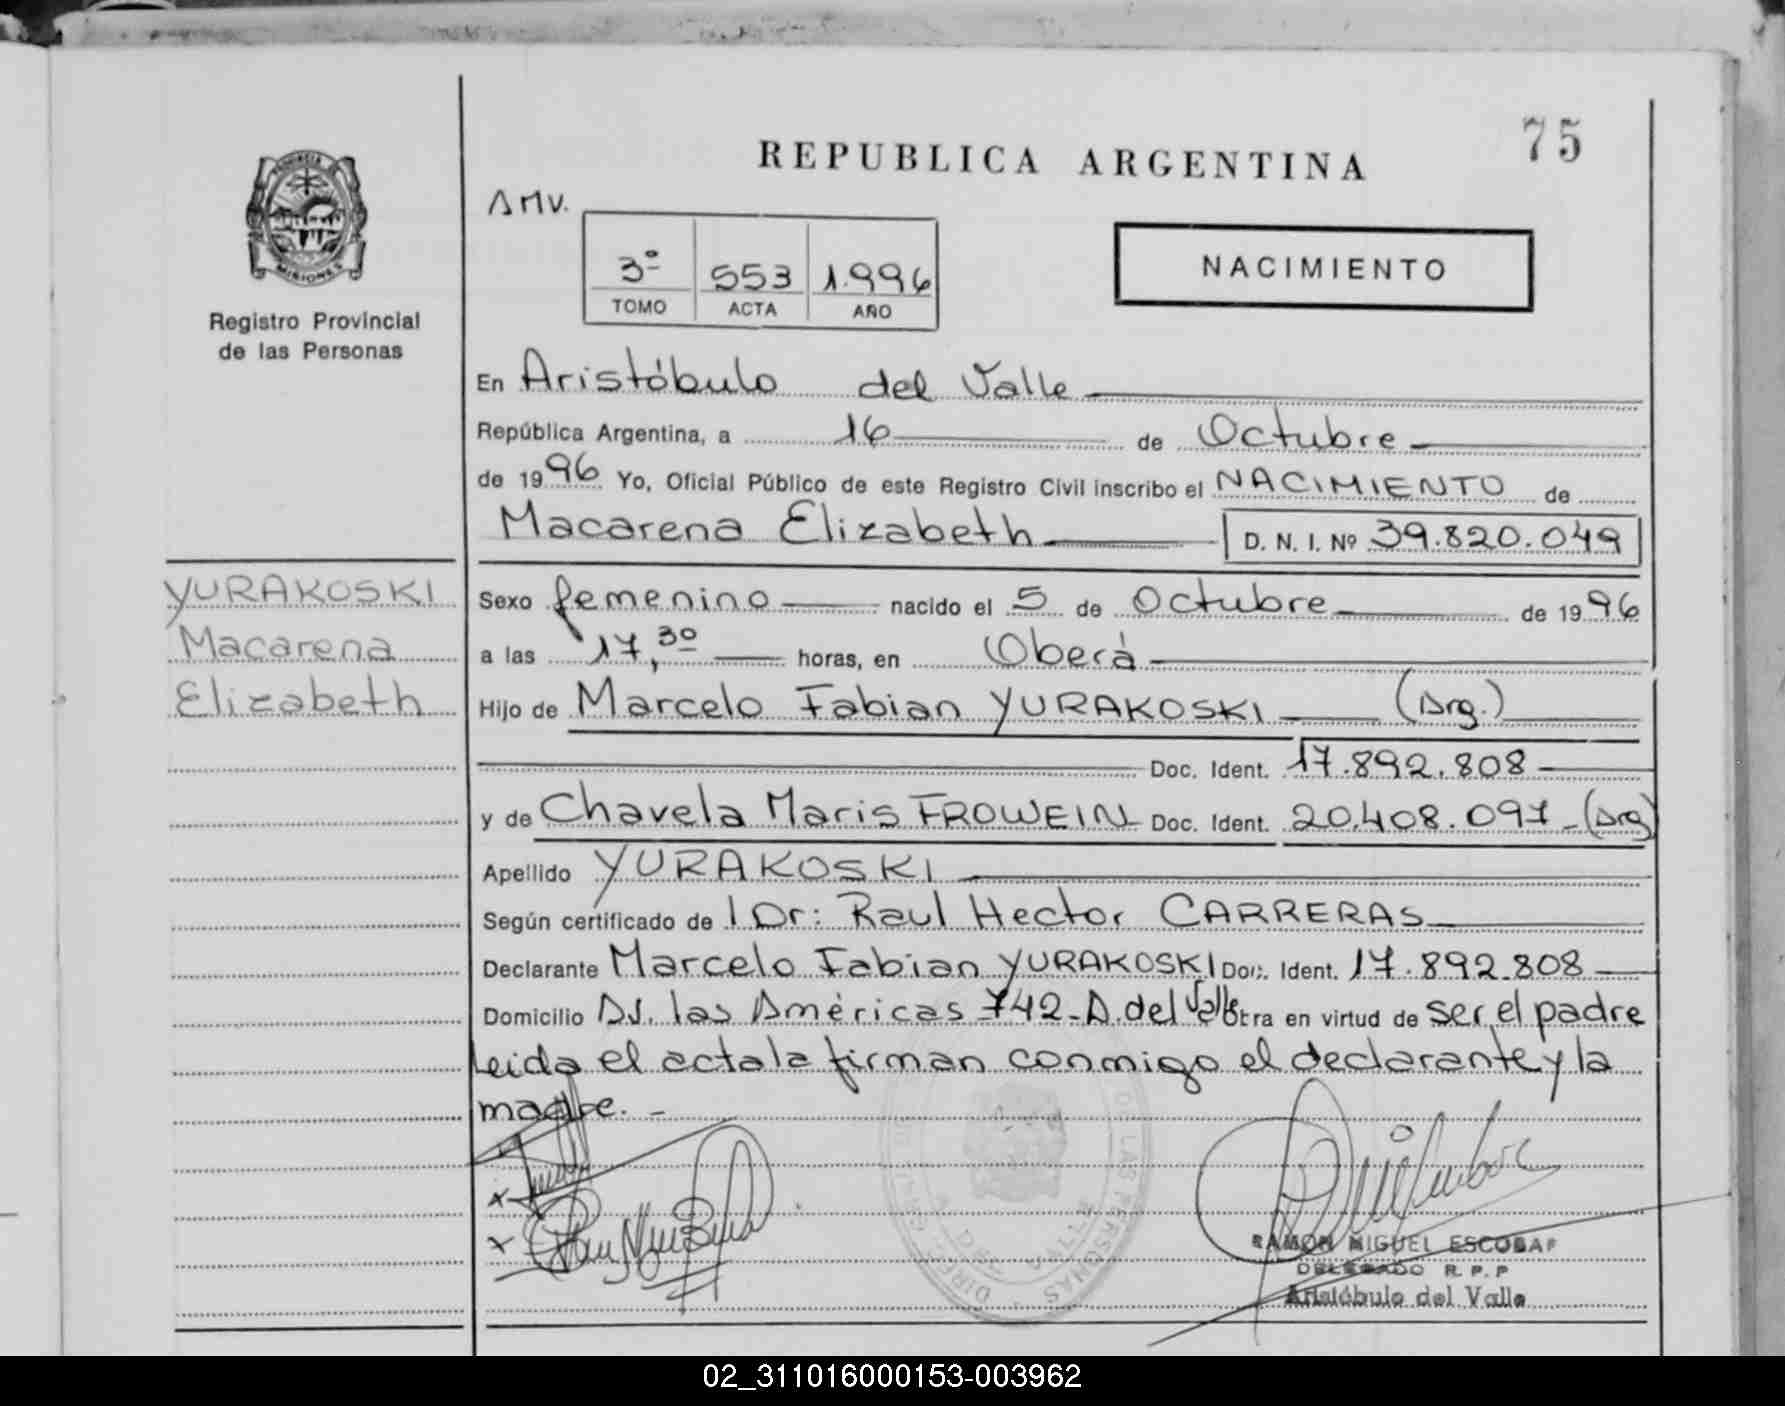 75
REPUBLICA ARGENTINA
AMV.
PROVINCIA
MISIONES
3º 553 1.996
TOMO ACTA AÑO
NACIMIENTO
Registro Provincial
de las Personas
En Aristóbulo del Valle
República Argentina, a 16 de Octubre
de 1996 Yo, Oficial Público de este Registro Civil inscribo el NACIMIENTO de
Macarena Elizabeth D. N. I. Nº 39.820.049
YURAKOSKI
Macarena
Elizabeth
Sexo femenino nacido el 5 de Octubre de 1996
a las 17,30 horas, en Oberá
Hijo de Marcelo Fabian YURAKOSKI (Arg.)
Doc. Ident. 17.892.808
y de Chavela Maris FROWEIN Doc. Ident. 20.408.097 - (Arg)
Apellido YURAKOSKI
Según certificado de l Dr: Raul Hector CARRERAS
Declarante Marcelo Fabian YURAKOSKI Doc. Ident. 17.892.808
Domicilio Av. las Américas 742 - A. del Valle tra en virtud de ser el padre
Leida el acta la firman conmigo el declarante y la
madre. -
RAMON MIGUEL ESCOBAR
DELEGADO R. P. P
Aristóbulo del Valle
02_311016000153-003962